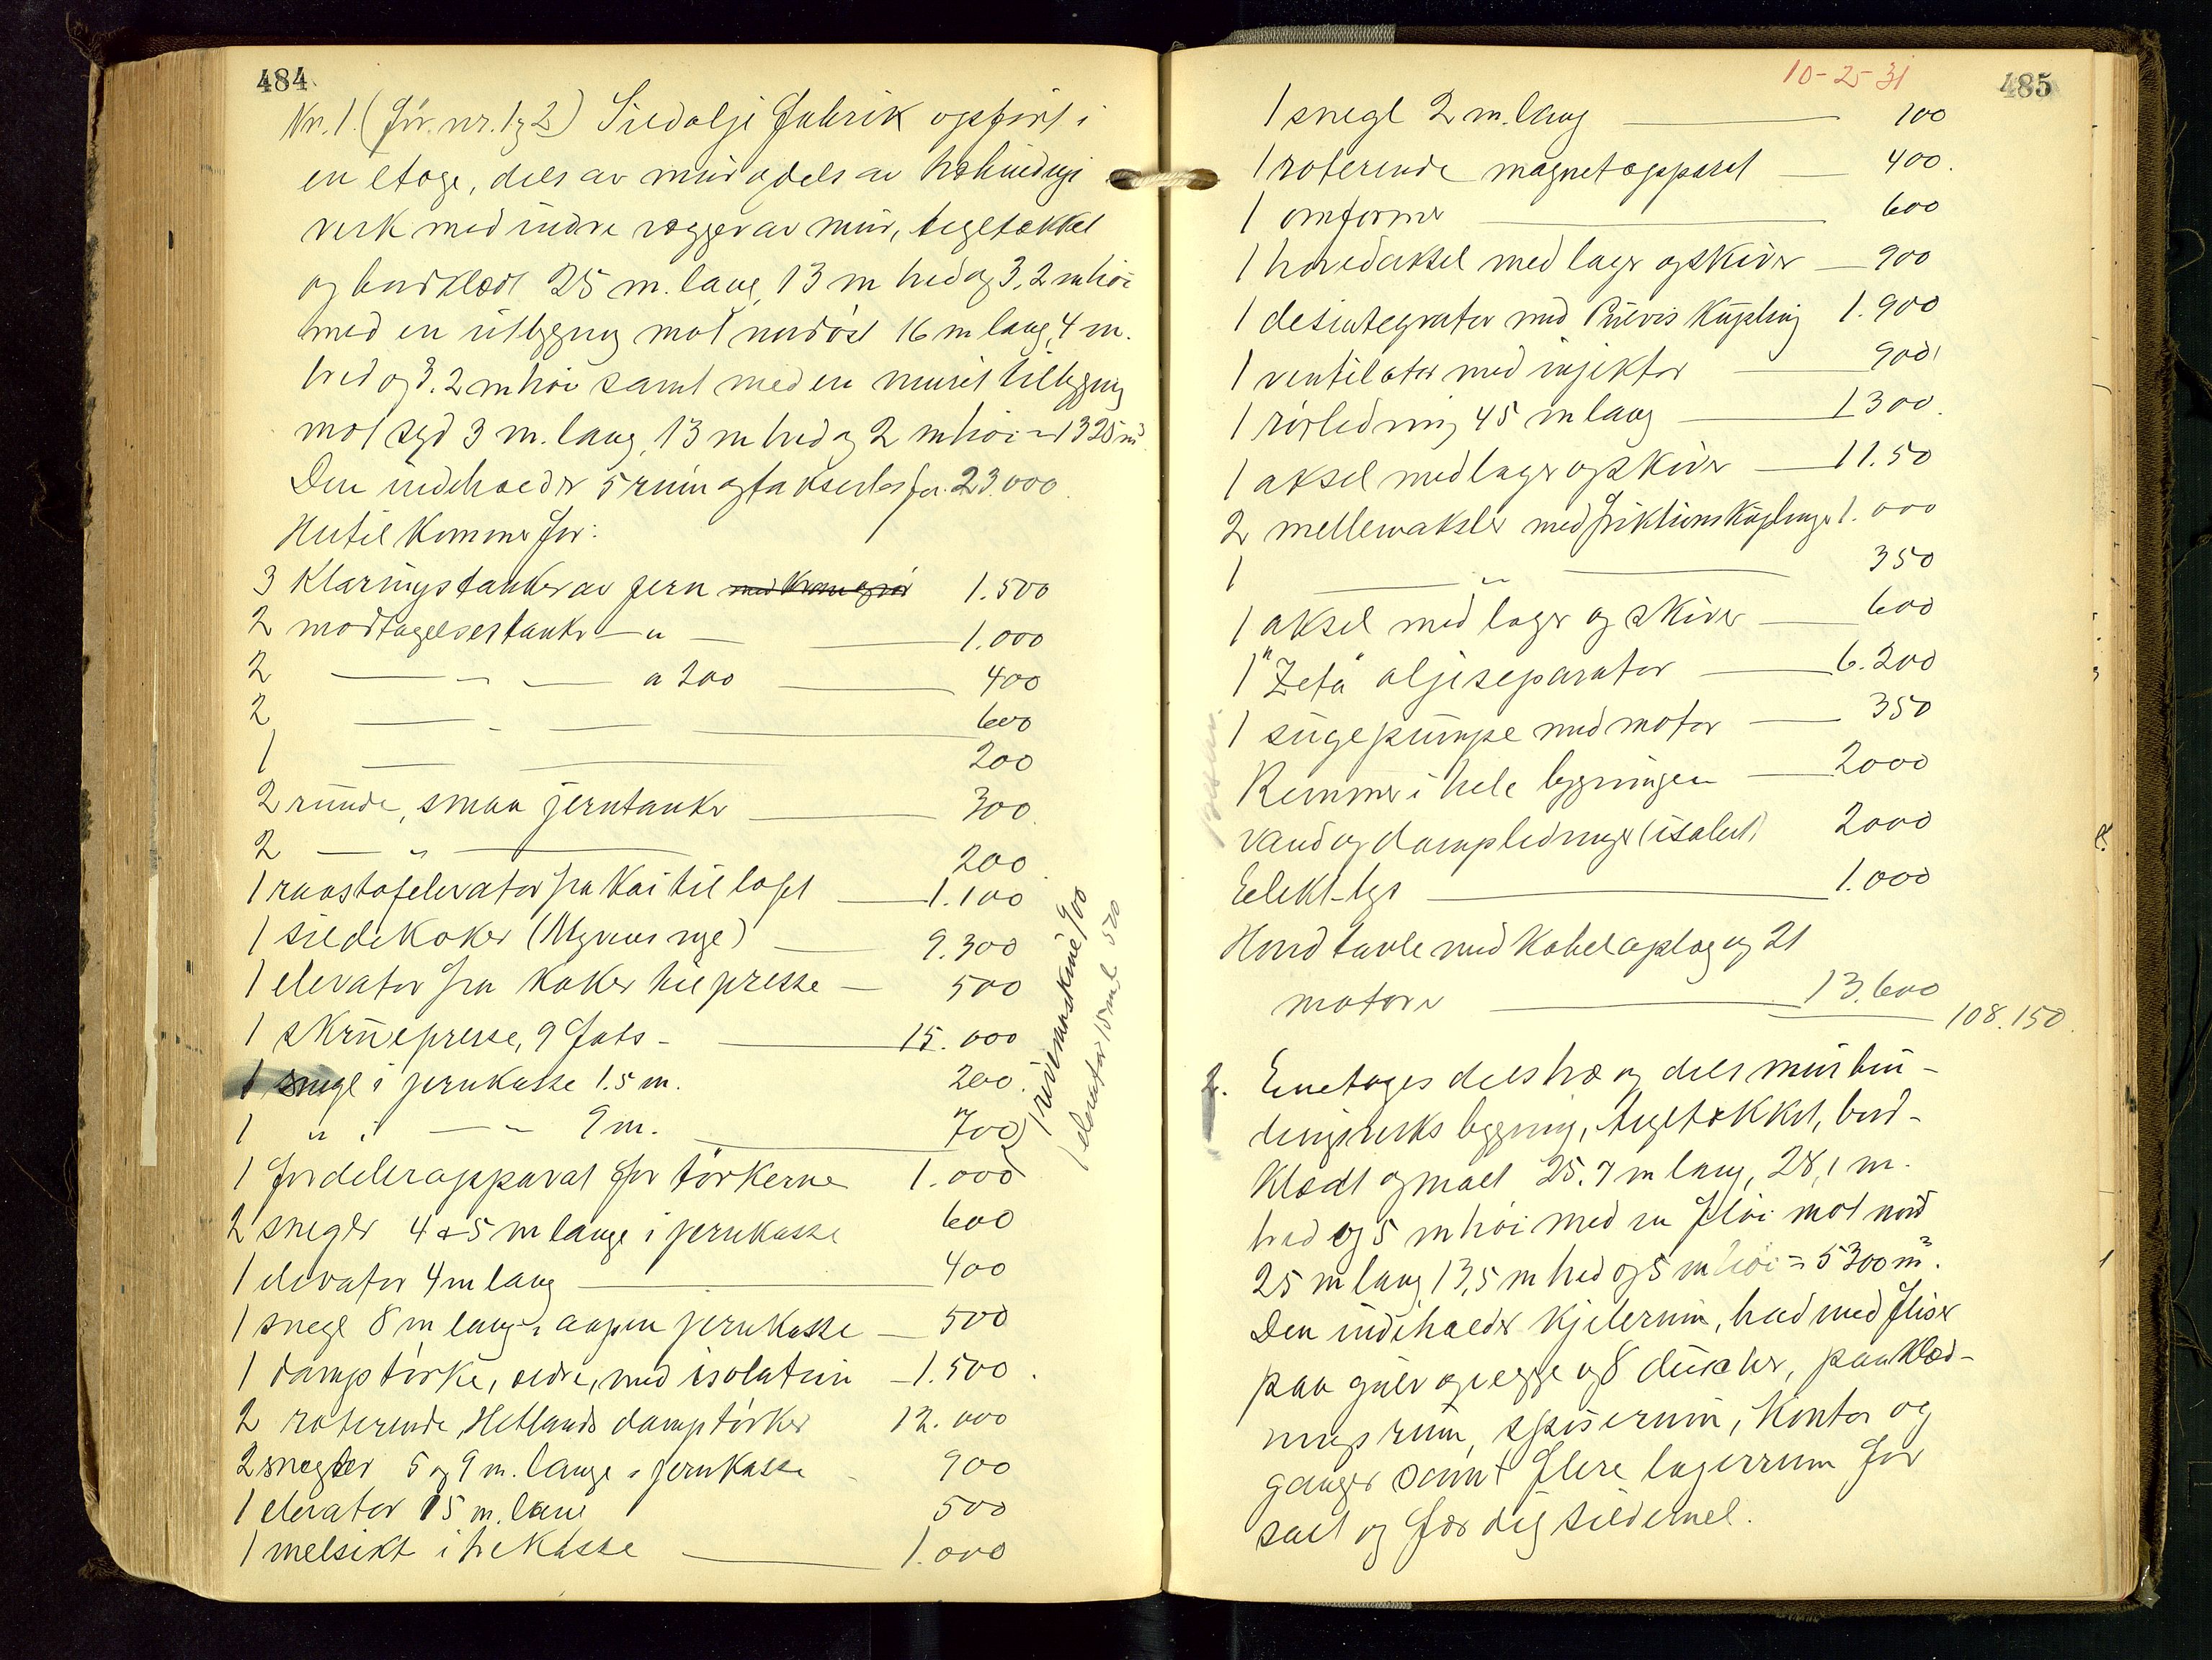 484
Nr. 1. (før nr. 1 & 2) Sildolje fabrik opført i
en etage, dels av mur og dels av trebindings
verk med indre vægger av mur, tegltækket
og bordklædt 25 m. lang, 13 m bred og 3,2 m høi
med en utbygning mot nordøst 16 m lang, 4 m.
bred og 3.2 m høi samt med en muret tilbygning
mot syd 3 m. lang, 13 m bred og 2 m høi = 1325 m³
Den indeholder 5 rum og takseres for 23.000.
Hertil kommer for:
3 Klaringstanker av jern med kraner og rør 1.500
2 modtagelsestanker — " — 1.000
2 — " — a 200 — 400
2 — " — 600
1 — 200
2 runde, smaa jerntanker — 300.
2 — " — 200.
1 raastofelevator fra kai til loft — 1.100
1 sildekoker (Myrens nye) — 9.300
1 elevator fra koker til presse — 500
1 skruepresse, 9 fots — 15.000
1 snegl i jernkasse 1.5 m. 200.
1 " i — " 9 m. — 700
1 rivemaskine 900
1 elevator 15 m l. 500
1 fordelerapparat for tørkerne 1.000
2 snegler 4 & 5 m lange i jernkasse 600
1 elevator 4 m lang — 400
1 snegl 8 m lang i aapen jernkasse — 500
1 damptørke, ældre, med isolation — 1.500.
2 roterende Hetlands damptørker 12.000
2 snegler 5 og 9 m. lange i jernkasse 900
1 elevator 15 m. lang 500
1 melsikt i trekasse — 1.000
10-25-31
485
1 snegl 2 m. lang — 100
1 roterende magnetapparat — 400.
1 omformer — 600
1 hovedaksel med lager og skiver — 900
1 desintegrator med Pulvis kupling 1.900
1 ventilator med injektor — 900
1 rørledning 45 m lang — 1300.
1 aksel med lager og skiver — 11.50
2 mellemaksler med friktionskuplinger 1.000
1 — " — 350
1 aksel med lager og skiver — 600
1 "Zeta" oljeseparator — 6.200
1 sugepumpe med motor — 350
Remmer i hele bygningen — 2000
Vand og dampledninger (isolert) 2000
Elekt. lys — 1.000
Hovedtavle med kabeloplag og 21
motorer — 13.600
108.150.
2. Enetages dels træ og dels murbin-
dingsverks bygning, tegltækket, bord-
klædt og malt 25.7 m lang, 28,1 m.
bred og 5 m høi med en fløi mot nord
25 m lang 13,5 m bred og 5 m høi = 5300 m³.
Den indeholder kjelerum, bad med fliser
paa gulv og vegge og 8 duscher, paaklæd-
ningsrum, spiserum, kontor og
ganger samt flere lagerrum for
salt og færdig sildemel.